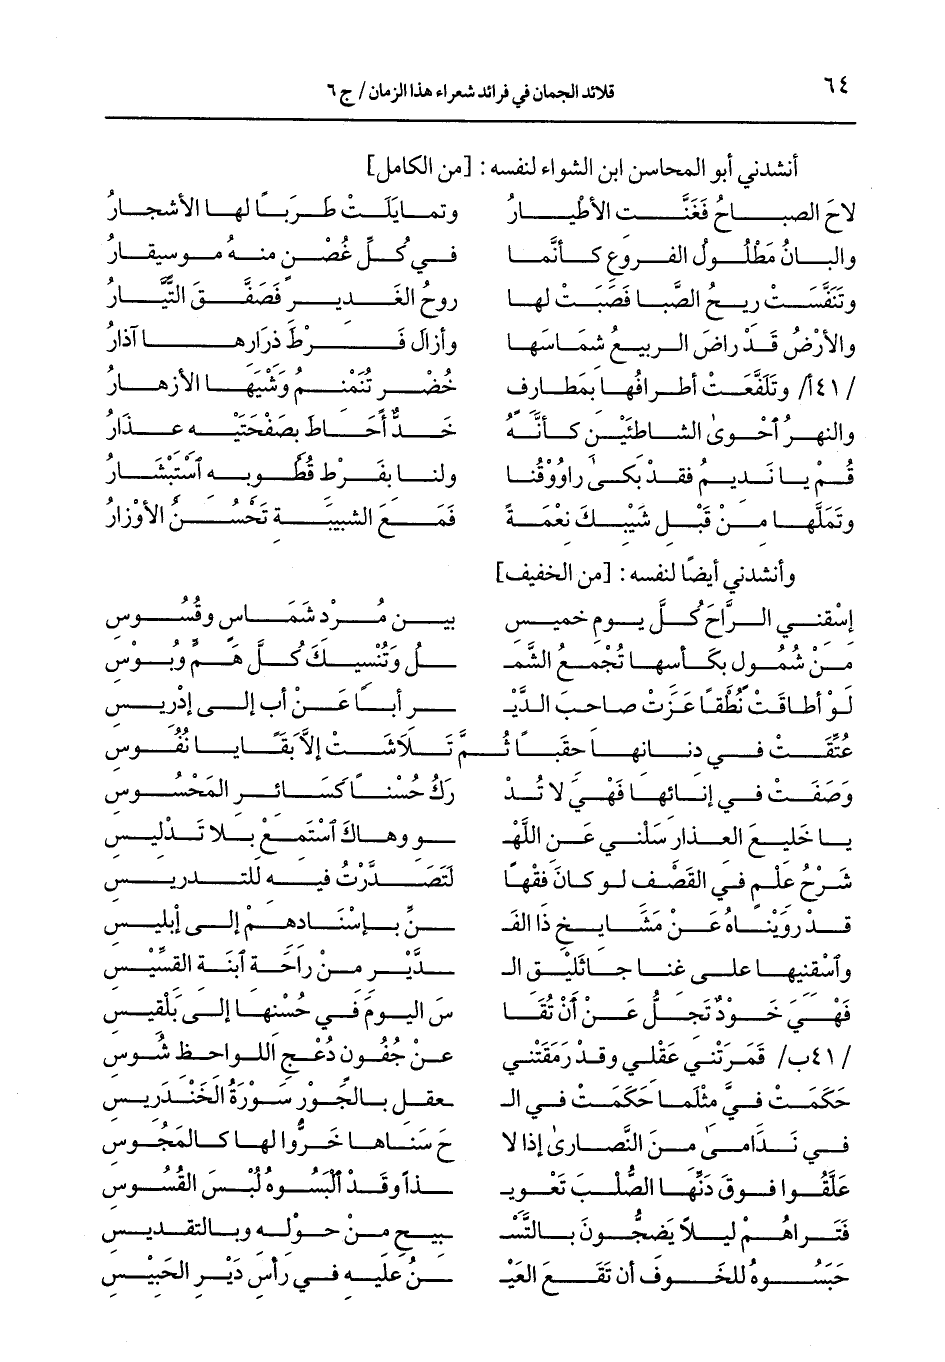 ٦٤
قلائد الجمان في فرائد شعراء هذا الزمان / ج ٦
أنشدني أبو المحاسن ابن الشواء لنفسه: [من الكامل]
لاحَ الصباحُ فَغَنَّت الأطيارُ وتمايلَتْ طَرَبًا لها الأشجارُ
والبانُ مَطْلُولُ الفروعِ كأنَّما في كُلِّ غُصْنٍ منهُ موسيقارُ
وتَنَفَّسَتْ ريحُ الصَّبا فَصَبَتْ لها روحُ الغَديرِ فَصَفَّقَ التَّيَّارُ
والأرْضُ قَدْ راضَ الربيعُ شَمَاسَها وأزالَ فَرْطَ ذرَارِها آذارُ
/٤١أ/ وتَلَفَّعَتْ أطرافُها بمَطارفٍ خُضْرٍ تُنَمْنِمُ وَشْيَها الأزهارُ
والنهرُ أحْوىٰ الشاطئَيْنِ كأنَّهُ خَدٌّ أَحَاطَ بصَفْحَتَيْهِ عذَارُ
قُمْ يا نَديمُ فقدْ بكىٰ راوُوْقُنا ولنا بفَرْطِ قُطُوبهِ ٱسْتبْشَارُ
وتَمَلَّها منْ قَبْلِ شَيْبكَ نعْمَةً فَمَعَ الشبيبَةِ تَحْسُنُ الأوْزارُ
وأنشدني أيضًا لنفسه: [من الخفيف]
إسْقني الرَّاحَ كُلَّ يومِ خميسِ بينَ مُرْدٍ شَمَاسٍ وقُسُوسِ
منْ شَمُولٍ بكَأسها تُجْمعُ الشَّمـ ـلُ وتُنْسيكَ كُلَّ هَمٍّ وبُوْسِ
لَوْ أطاقَتْ نُطْقاً عَزَتْ صاحبَ الدَّيْـ ـرِ أباً عَنْ أبٍ إلى إدْريسِ
عُتِّقَتْ في دنانها حقَباً ثُمَّ تَلاشَتْ إلاَّ بَقَايا نُفُوسِ
وَصَفَتْ في إنَائها فَهْيَ لا تُدْ رَكُ حُسْناً كَسَائرِ المَحْسُوسِ
يا خَليعَ العذارِ سَلْني عَنِ اللَّهْـ ـوِ وهاكَ ٱسْتَمعْ بلا تَدْليسِ
شَرْحُ علْمٍ في القَصْفِ لو كانَ فقْهاً لَتَصَدَّرْتُ فيهِ للتدريسِ
قدْ رويْنَاهُ عَنْ مَشَايخِ ذا الفَـ ـنِّ بإسْنَادهمْ إلى إبليسِ
وٱسْقنيها على غنا جاثَليْقِ الـ ـدَّيْرِ منْ راحَةِ ٱبنَةِ القسِّيْسِ
فَهْيَ خَوْدٌ تَجلُّ عَنْ أنْ تُقَا سَ اليومَ في حُسْنها إلى بَلْقيسِ
/٤١ب/ قَمَرَتْني عَقْلي وقدْ رَمَقَتْني عنْ جُفُونٍ دُعْجِ اللواحظِ شُوسِ
حَكَمَتْ فيَّ مثْلَما حَكَمَتْ في الـ ـعقلِ بالجَوْرِ سَوْرَةُ الخَنْدَريسِ
في نَدَامىٰ منَ النَّصارىٰ إذا لا حَ سَنَاها خَرُّوا لها كالمَجُوسِ
عَلَّقُوا فوقَ دَنِّها الصُّلبَ تَعْويـ ـذاً وقَدْ ٱلْبَسُوهُ لُبْسَ القُسُوسِ
فَتَراهُمْ ليلاً يَضجُّونَ بالتَّسْـ ـبيحِ منْ حَوْلهِ وبالتقديسِ
حَبَسُوهُ للخَوفِ أن تَقَعَ العَيْـ ـنُ عليهِ في رأسِ دَيْرِ الحَبيْسِ